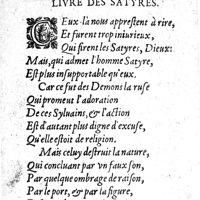 LIVRE DES SATYRES.
CEux-là nous apprestent à rire,
Et furent trop iniurieux,
Qui firent les Satyres, Dieux:
Mais, qui admet l'homme Satyre,
Est plus insupportable qu'eux.
Car ce fut des Demons la ruse
Qui promeut l'adoration
De ces Syluains, & l'action
Est d'autant plus digne d'excuse,
Qu'elle estoit de religion.
Mais celuy destruit la nature,
Qui concluant par vn faux son,
Par quelque ombrage de raison,
Par le port, & par la figure,